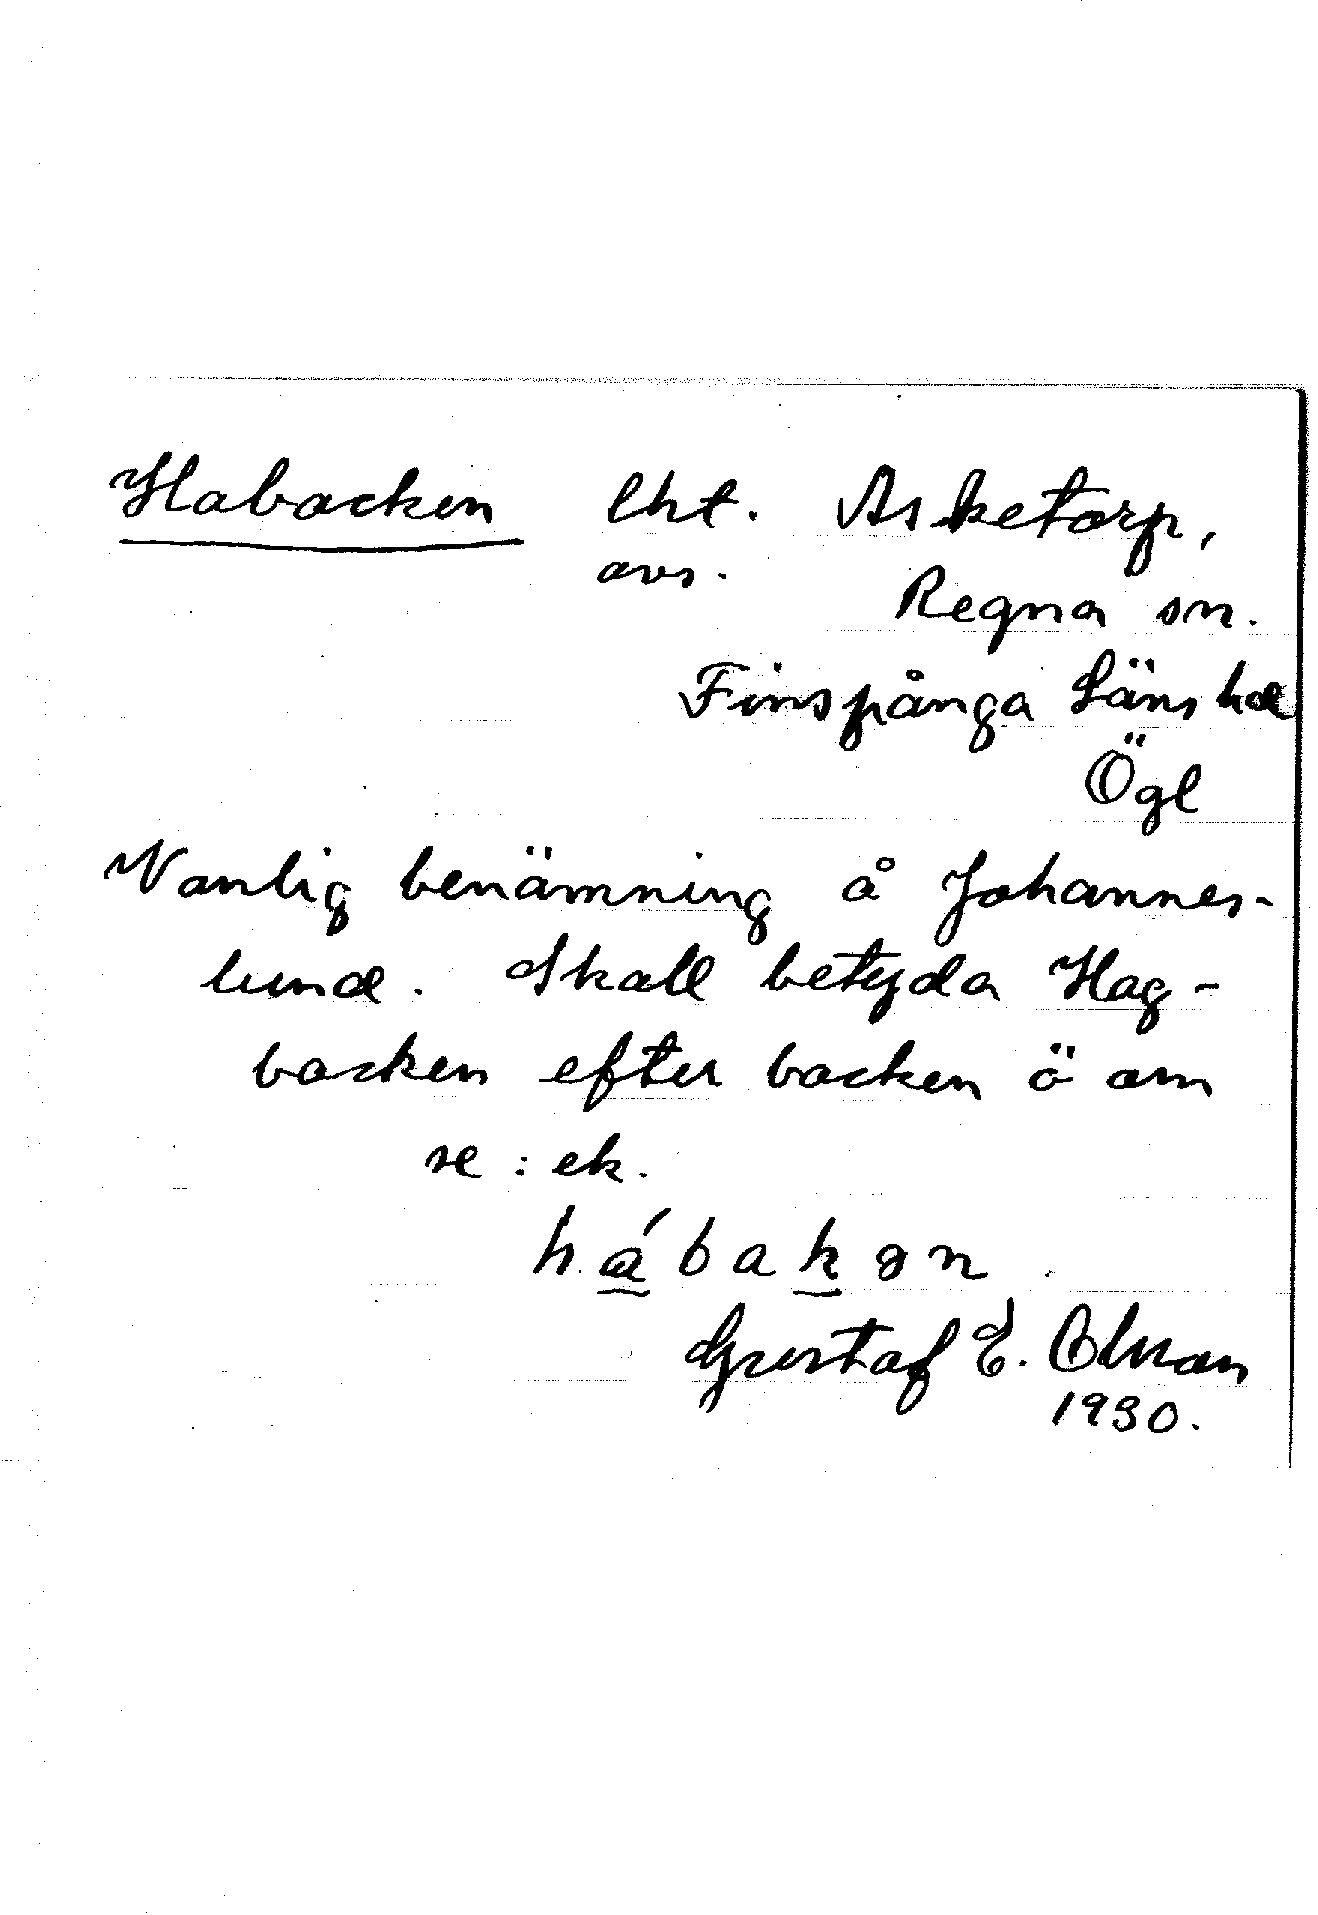 Habacken lht. Asketorp,
avs. Regna sn.
Finspånga Läns hd
Ögl
Vanlig benämning å Johannes-
lund. Skall betyda Hag-
backen efter backen ö om
se : ek.
hábakən
Gustaf E. Olsson
1930.